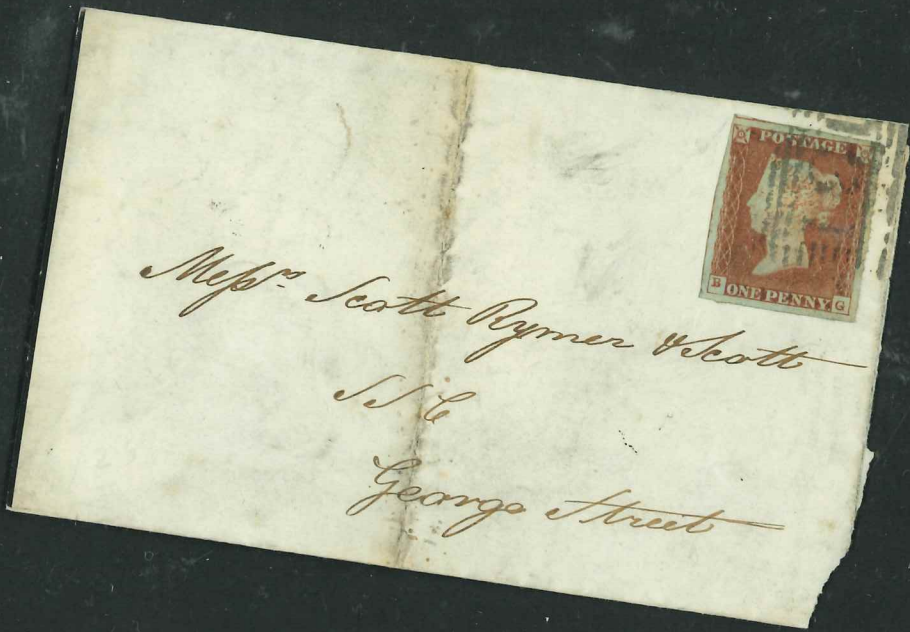 POSTAGE
B ONE PENNY G
Messrs Scott Rymer & Scott
SSC
George Street